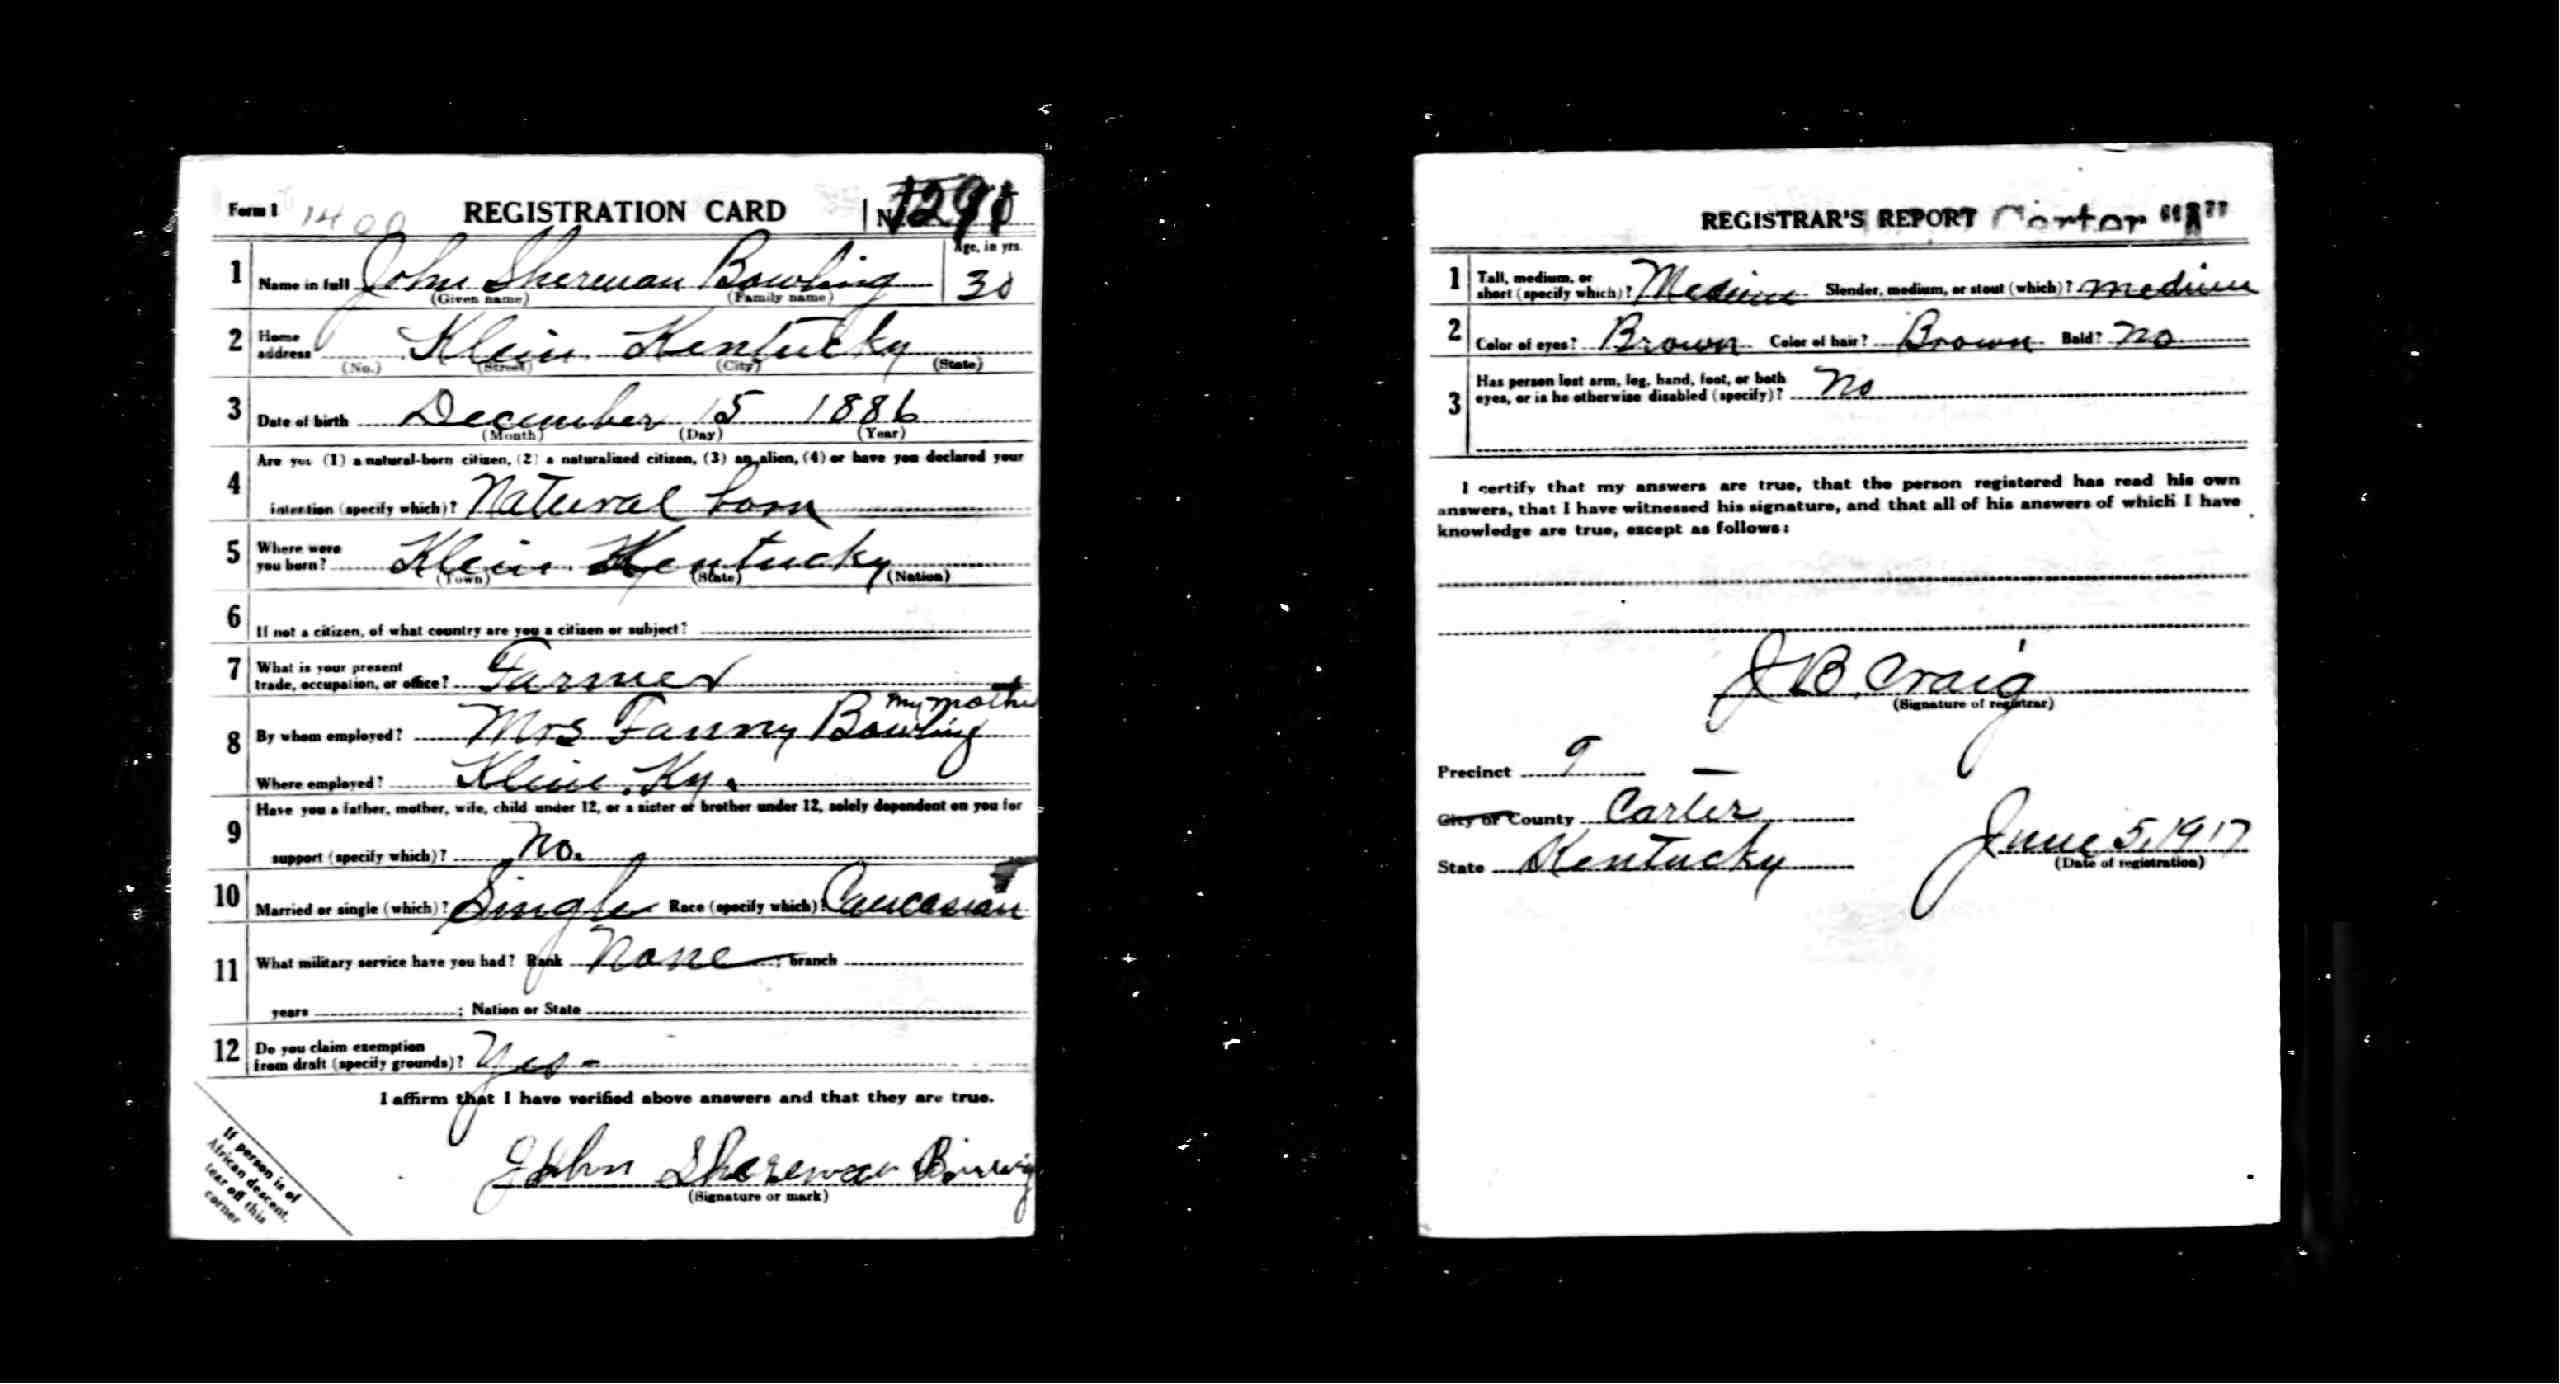 Form 1 1400 REGISTRATION CARD No. 1291
1 Name in full John Sherman Bowling Age, in yrs. 30
(Given name) (Family name)
2 Home address Klein Kentucky
(No.) (Street) (City) (State)
3 Date of birth December 15 1886
(Month) (Day) (Year)
4 Are you (1) a natural-born citizen, (2) a naturalized citizen, (3) an alien, (4) or have you declared your
intention (specify which)? Natural born
5 Where were you born? Klein Kentucky
(Town) (State) (Nation)
6 If not a citizen, of what country are you a citizen or subject?
7 What is your present
trade, occupation, or office? Farmer
my mother
8 By whom employed? Mrs Fanny Bowling
Where employed? Klein. Ky.
9 Have you a father, mother, wife, child under 12, or a sister or brother under 12, solely dependent on you for
support (specify which)? No.
10 Married or single (which)? Single Race (specify which)? Caucasian
11 What military service have you had? Rank None ; branch
years ; Nation or State
12 Do you claim exemption
from draft (specify grounds)? Yes -
I affirm that I have verified above answers and that they are true.
John Sherman Bowling
(Signature or mark)
If person is of
African descent,
tear off this
corner
REGISTRAR'S REPORT Carter "A"
1 Tall, medium, or
short (specify which)? Medium Slender, medium, or stout (which)? medium
2 Color of eyes? Brown Color of hair? Brown Bald? No
3 Has person lost arm, leg, hand, foot, or both
eyes, or is he otherwise disabled (specify)? No
I certify that my answers are true, that the person registered has read his own
answers, that I have witnessed his signature, and that all of his answers of which I have
knowledge are true, except as follows:
J B Craig
(Signature of registrar)
Precinct 9
City or County Carter
State Kentucky June 5, 1917
(Date of registration)